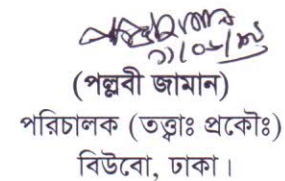 (পল্লবী জামান)
পরিচালক (তত্ত্বাঃ প্রকৌঃ)
বিউবো, ঢাকা।